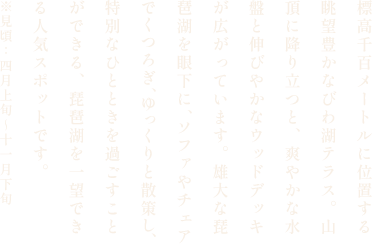 標高千百メートルに位置する
眺望豊かなびわ湖テラス。山
頂に降り立つと、爽やかな水
盤と伸びやかなウッドデッキ
が広がっています。雄大な琵
琶湖を眼下に、ソファやチェア
でくつろぎ、ゆっくりと散策し、
特別なひとときを過ごすこと
ができる、琵琶湖を一望でき
る人気スポットです。
※見頃：四月上旬〜十一月下旬